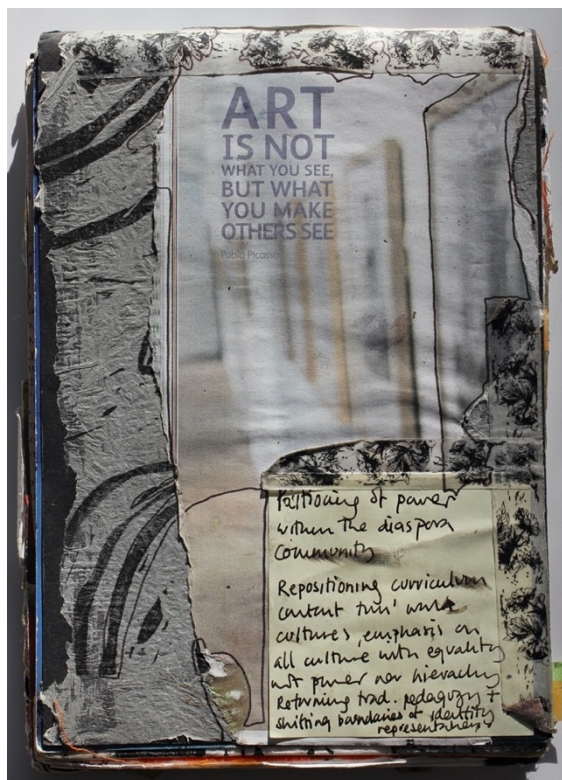 ART
IS NOT
WHAT YOU SEE,
BUT WHAT
YOU MAKE
OTHERS SEE
Pablo Picasso
Positioning of power
within the diaspora
community
Repositioning curriculum
content thro'
cultures, emphasis on
all culture with equality
not power nor hierarchy
Returning trad. pedagogy +
shifting boundaries of identity
representations